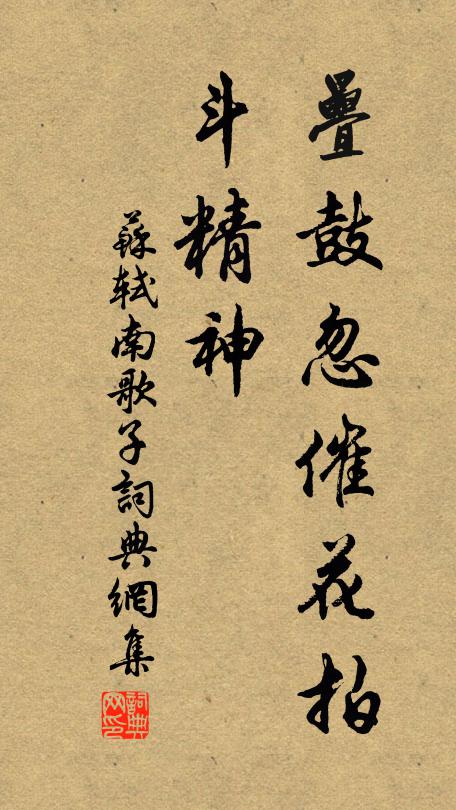 疊鼓忽催花拍
斗精神
蘇軾南歌子詞典網集
詞典网印